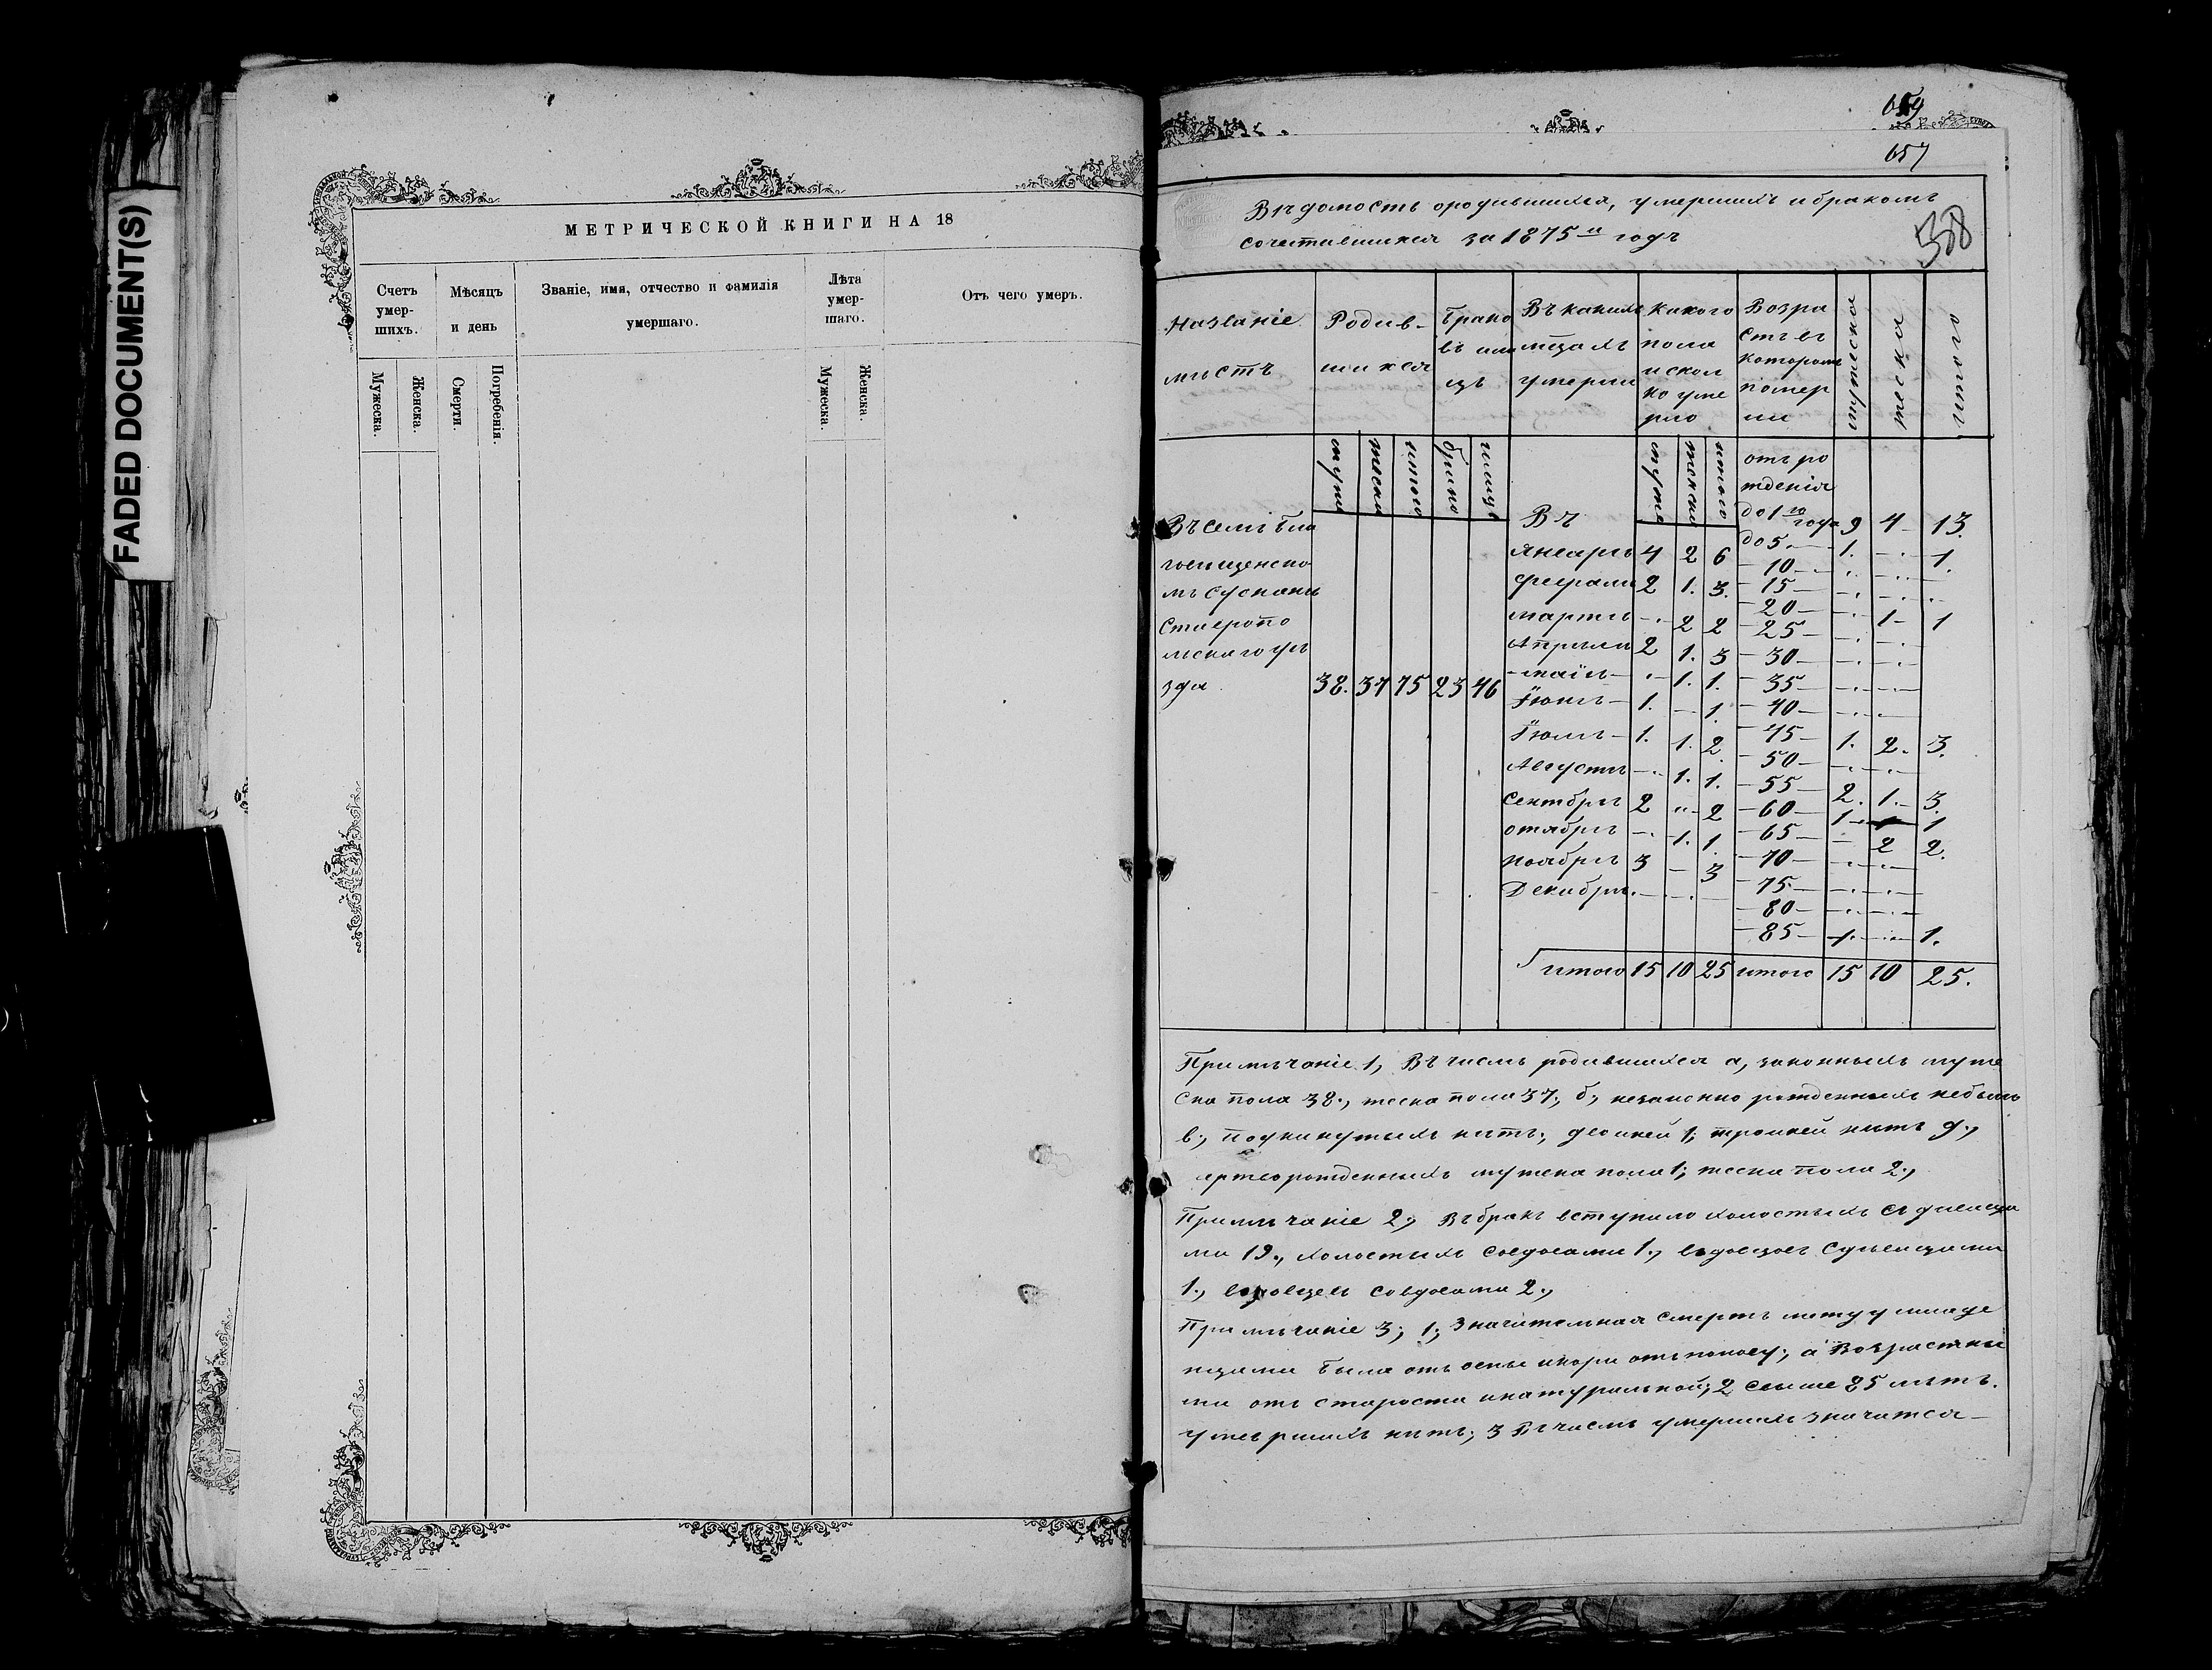 FADED DOCUMENT(S)
МЕТРИЧЕСКОЙ КНИГИ НА 18
Счетъ умер-шихъ.
Мѣсяцъ и день
Званіе, имя, отчество и фамилія умершаго.
Лѣта умер-шаго.
Отъ чего умеръ.
Мужеска.
Женска.
Смерти.
Погребенія.
Мужеска.
Женска.
659
657
Вѣдомость ородившихся, умершихъ ибракомъ
сочетавшихся за 1875й годъ
358
Названіе мѣстъ
Родив-шихся
Брако въ или цъ
Въ какихъ мѣсяцахъ умерли
Какого пола искол ко уме рло
Возра стъ въ которомъ помер ли
мужеска
женска
итого
муже
женска
итого
брако
лицъ
муже
женска
итого
Въ селѣ Бла
говещенско
мъ
Ставропо
льскаго уѣ
зда 38. 37 75 23 46
Въ
Январѣ 4 2 6
Февралѣ 2 1. 3.
мартѣ -.- 2 2
Апрѣлѣ 2 1. 3
-маїѣ- -.- 1. 1.
Їюнѣ- 1. - 1.
Їюлѣ- 1. 1. 2.
Августѣ -.- 1. 1.
Сентябрѣ 2 " 2
отябрѣ -. 1. 1.
Ноябрѣ 3 - 3
Декабрѣ.-
отъ ро
жденія
до 1го года 9 4- 13.
до 5.- 1. -.- 1.
-10-
-15-
-20- -.- 1- 1
-25-
-30-
-35-
-40-
-45- 1. 2. 3.
-50-
-55- 2. 1.- 3.
-60- 1- 1
-65- - 2 2.
-70-
-75.-
-80-
-85- 1. -.- 1.
итого 15 10 25 итого 15 10 25.
Примѣчаніе 1, Въ числѣ родившихся а, законныхъ муже
ска пола 38., женска пола 37., б, незаконно рожденныхъ небыло
в., подкинутыхъ нѣтъ., двоиней 1; троиней нѣтъ д.,
мертворожденныхъ мужека пола 1; жеска пола 2.,
Примѣчаніе 2, Въ бракъ вступило холостыхъ съ дѣвица
ми 19., холостыхъ совдовами 1., вдовцовъ судѣвицами
1., вдовцевъ совдовами 2.,
Примѣчаніе 3; 1; Значительная смерть между младе
нцами была отъ оспы икори отъ поносу; а Возрастны
ми отъ старости инатуральной; 2 свыше 85 лѣтъ.
умершихъ нѣтъ; 3 Въ числѣ умершихъ значится-